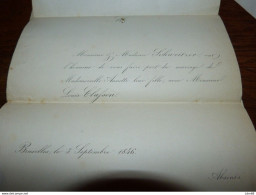 Monsieur & Madame Schouten ont
l'honneur de vous faire part du mariage de
Mademoiselle Annette leur fille, avec Monsieur
Louis Clafsen
Bruxelles, le 5 Septembre 1846.